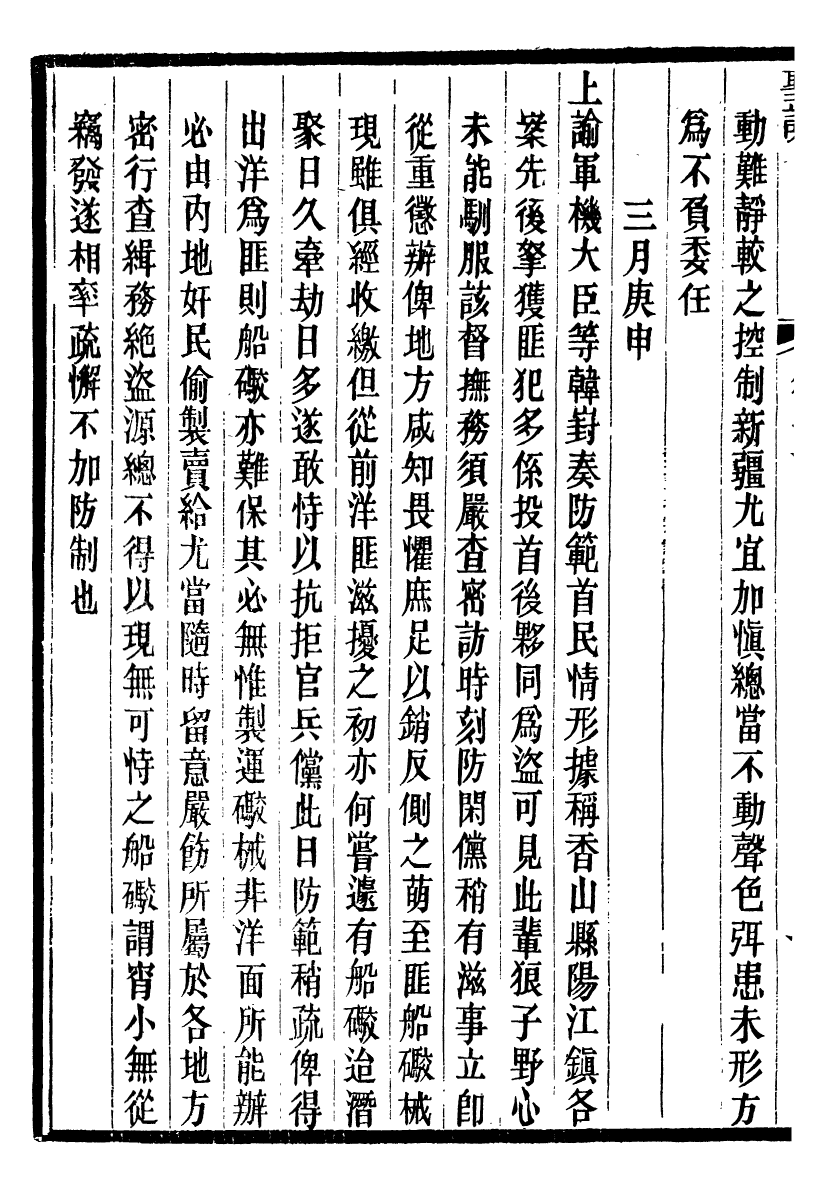 動難靜較之控制新疆尤宜加愼總當不動聲色弭患未形方
爲不負委任
三月庚申
上諭軍機大臣等韓崶奏防範首民情形據稱香山縣陽江鎮各
案先後拏獲匪犯多係投首後夥同爲盜可見此輩狼子野心
未能馴服該督撫務須嚴查密訪時刻防閑儻稍有滋事立卽
從重懲辦俾地方咸知畏懼庶足以銷反側之萌至匪船礮械
現雖俱經收繳但從前洋匪滋擾之初亦何嘗遽有船礮迨潛
聚日久牽劫日多遂敢恃以抗拒官兵儻此日防範稍疏俾得
出洋爲匪則船礮亦難保其必無惟製運礮械非洋面所能辦
必由內地奸民偷製賣給尤當隨時留意嚴飭所屬於各地方
密行查緝務絶盜源總不得以現無可恃之船礮謂宵小無從
竊發遂相率疏懈不加防制也